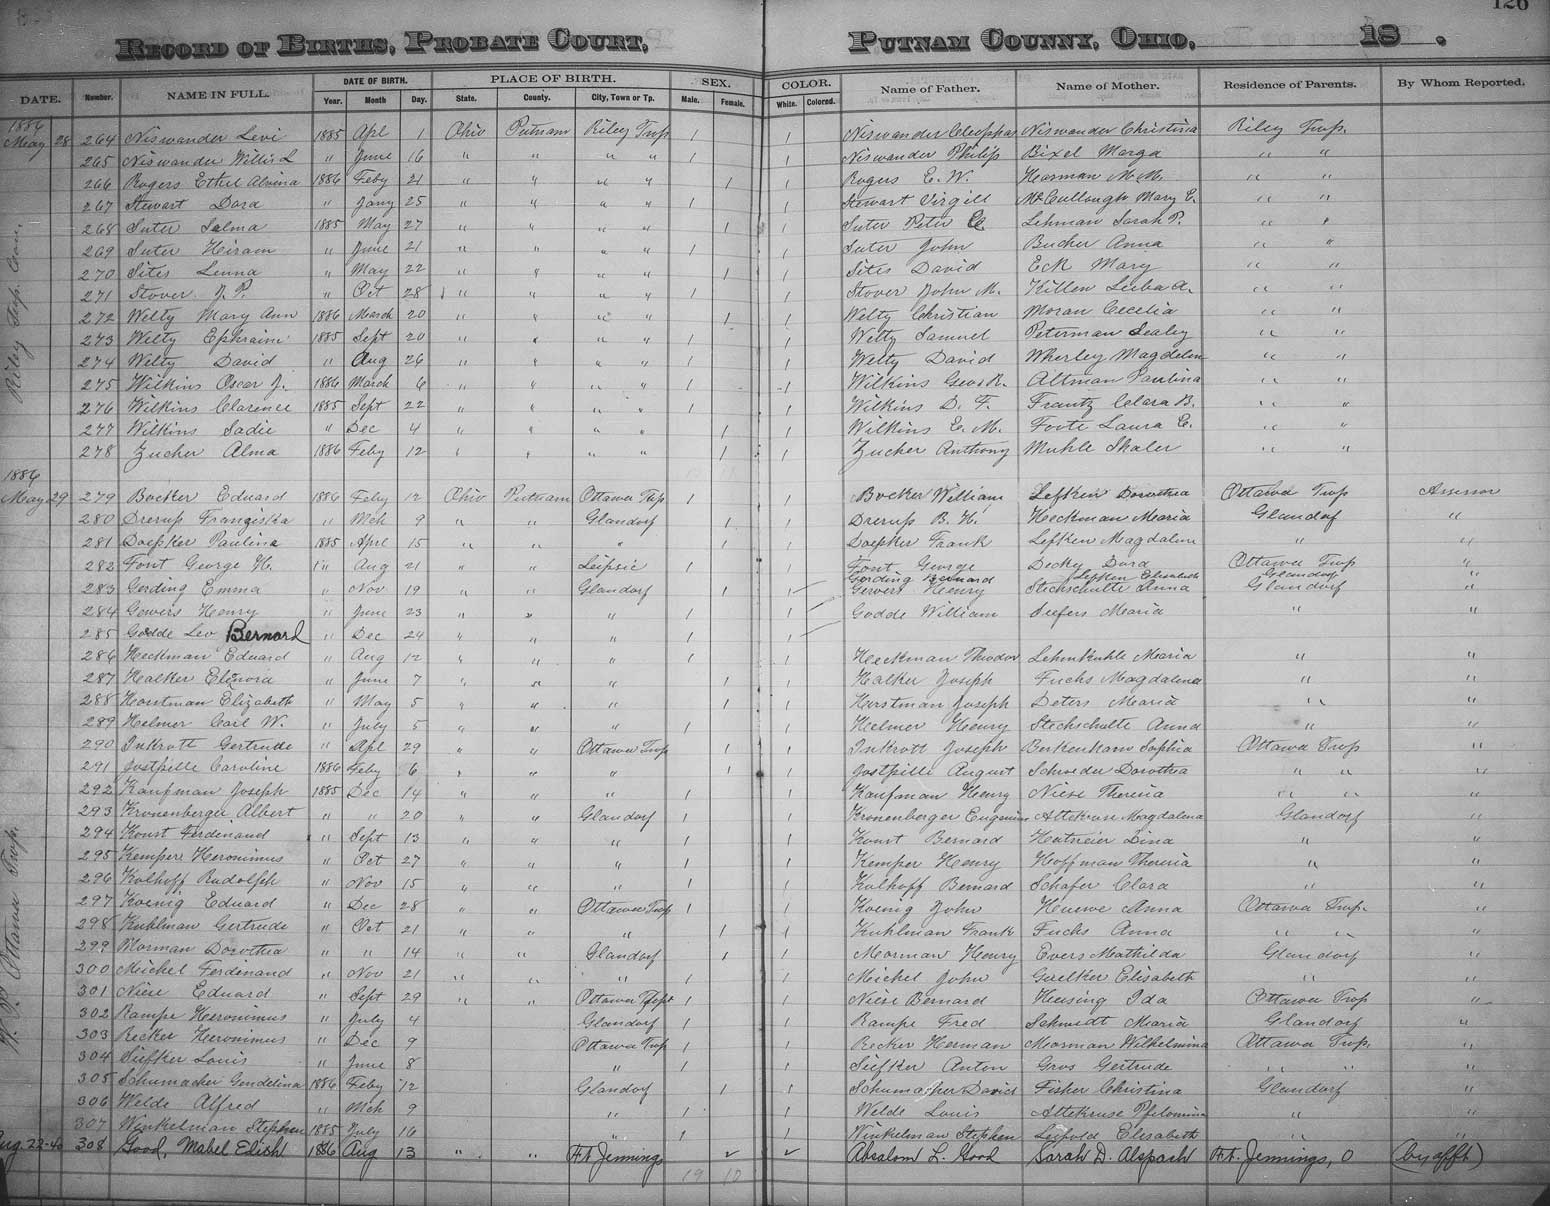 126
RECORD OF BIRTHS, PROBATE COURT, PUTNAM COUNNY, OHIO, 18 .
DATE. Number. NAME IN FULL. DATE OF BIRTH. PLACE OF BIRTH. SEX. COLOR. Name of Father. Name of Mother. Residence of Parents. By Whom Reported.
Year. Month Day. State. County. City, Town or Tp. Male. Female. White. Colored.
1886
May 28 264 Niswander Levi 1885 Apl 1 Ohio Putnam Riley Twp 1 1 Niswander Cleophas Niswander Christina Riley Twp.
265 Niswander Willis L " June 16 " " " " 1 1 Niswander Philip Bixel Marga " "
266 Rogers Ethel Almina 1886 Feby 21 " " " " 1 1 Rogers E. W. Harman M. M. " "
267 Stewart Dora " Jany 25 " " " " 1 1 Stewart Virgill McCullough Mary E. " "
268 Suter Salma 1885 May 27 " " " " 1 1 Suter Peter C Lehman Sarah P. " "
269 Suter Hiram " June 21 " " " " 1 1 Suter John Bucher Anna " "
270 Sites Lenna " May 22 " " " " 1 1 Sites David Eck Mary " "
271 Stover J. P. " Oct 28 " " " " 1 1 Stover John M. Killen Luba A. " "
272 Welty Mary Ann 1886 March 20 " " " " 1 1 Welty Christian Moran Cecelia " "
273 Welty Ephraim 1885 Sept 20 " " " " 1 1 Welty Samuel Peterman Sealey " "
274 Welty David " Aug 26 " " " " 1 1 Welty David Wherley Magdalen " "
275 Wilkins Oscar J. 1886 March 6 " " " " 1 1 Wilkins Geo. R. Altman Paulina " "
276 Wilkins Clarence 1885 Sept 22 " " " " 1 1 Wilkins D. F. Frantz Clara B. " "
277 Wilkins Sadie " Dec 4 " " " " 1 1 Wilkins E. M. Foote Laura E. " "
278 Zucher Alma 1886 Feby 12 " " " " 1 1 Zucher Anthony Muhle Skaler " "
Riley Twp. Con.
1886
May 29 279 Bocker Eduard 1886 Feby 12 Ohio Putnam Ottawa Twp 1 1 Bocker William Lefken Dorothea Ottawa Twp Assessor
280 Drerup Frangiska " Mch 9 " " Glandorf 1 1 Drerup B. H. Heckman Maria Glandorf "
281 Doepker Paulina 1885 April 15 " " " 1 1 Doepker Frank Lefken Magdalen " "
282 Font George H. " Aug 21 " " Leipsic 1 1 Font George Decky Dora Ottawa Twp "
Gerding Bernard Lefken Elisabeth Glandorf "
283 Gerding Emma " Nov 19 " " Glandorf 1 1 Gewers Henry Stechschulte Anna Glandorf "
284 Gewers Henry " June 23 " " " 1 1 Godde William Siefers Maria " "
285 Godde Leo Bernard " Dec 24 " " " 1 1
286 Heckman Eduard " Aug 12 " " " 1 1 Heckman Theodor Lehmkuhle Maria " "
287 Halker Elenora " June 7 " " " 1 1 Halker Joseph Fuchs Magdalena " "
288 Horstman Elizabeth " May 5 " " " 1 1 Horstman Joseph Deters Maria " "
289 Helmer Carl W. " July 5 " " " 1 1 Helmer Henry Stechschulte Anna " "
290 Inkrott Gertrude " Apl 29 " " Ottawa Twp 1 1 Inkrott Joseph Berkenkam Sophia Ottawa Twp "
291 Jostpille Caroline 1886 Feby 6 " " " 1 1 Jostpille August Schroeder Dorothea " " "
292 Kaufman Joseph 1885 Dec 14 " " " 1 1 Kaufman Henry Niese Theresia " " "
293 Kronenberger Albert " " 20 " " Glandorf 1 1 Kronenberger Eugenius Attekruse Magdalena Glandorf "
294 Konst Ferdenand " Sept 13 " " " 1 1 Konst Bernard Hatmeier Dina " "
295 Kemper Heronimus " Oct 27 " " " 1 1 Kemper Henry Hoffman Theresia " "
296 Kolhoff Rudolph " Nov 15 " " " 1 1 Kolhoff Bernard Schafer Clara " "
297 Koenig Eduard " Dec 28 " " Ottawa Twp 1 1 Koenig John Huewe Anna Ottawa Twp. "
298 Kuhlman Gertrude " Oct 21 " " " 1 1 Kuhlman Frank Fuchs Anna " " "
399 Morman Dorothea " " 14 " " Glandorf 1 1 Morman Henry Evers Mathilda Glandorf "
300 Michel Ferdinand " Nov 21 " " " 1 1 Michel John Guelker Elisabeth " "
301 Niese Eduard " Sept 29 " " Ottawa Twp 1 1 Niese Bernard Hensing Ida Ottawa Twp "
302 Rampe Heronimus " July 4 Glandorf 1 1 Rampe Fred Schmidt Maria Glandorf "
303 Recker Heronimus " Dec 9 Ottawa Twp 1 1 Recker Herman Morman Wilhelmina Ottawa Twp. "
304 Siefker Louis " June 8 " 1 1 Siefker Anton Gros Gertrude " " "
305 Schumacher Gendelina 1886 Feby 12 Glandorf 1 1 Schumacher David Fisher Christina Glandorf "
306 Welde Alfred " Mch 9 " 1 1 Welde Louis Attekruse Philomina " "
307 Winkelman Stephen 1885 July 16 " 1 1 Winkelman Stephen Leopold Elisabeth " "
Aug. 22-40 308 Good, Mabel Edith 1886 Aug 13 " " Ft. Jennings ✓ ✓ Absalom L. Good Sarah D. Alspach Ft. Jennings, O (by afft)
19 10
Ottawa Twp.